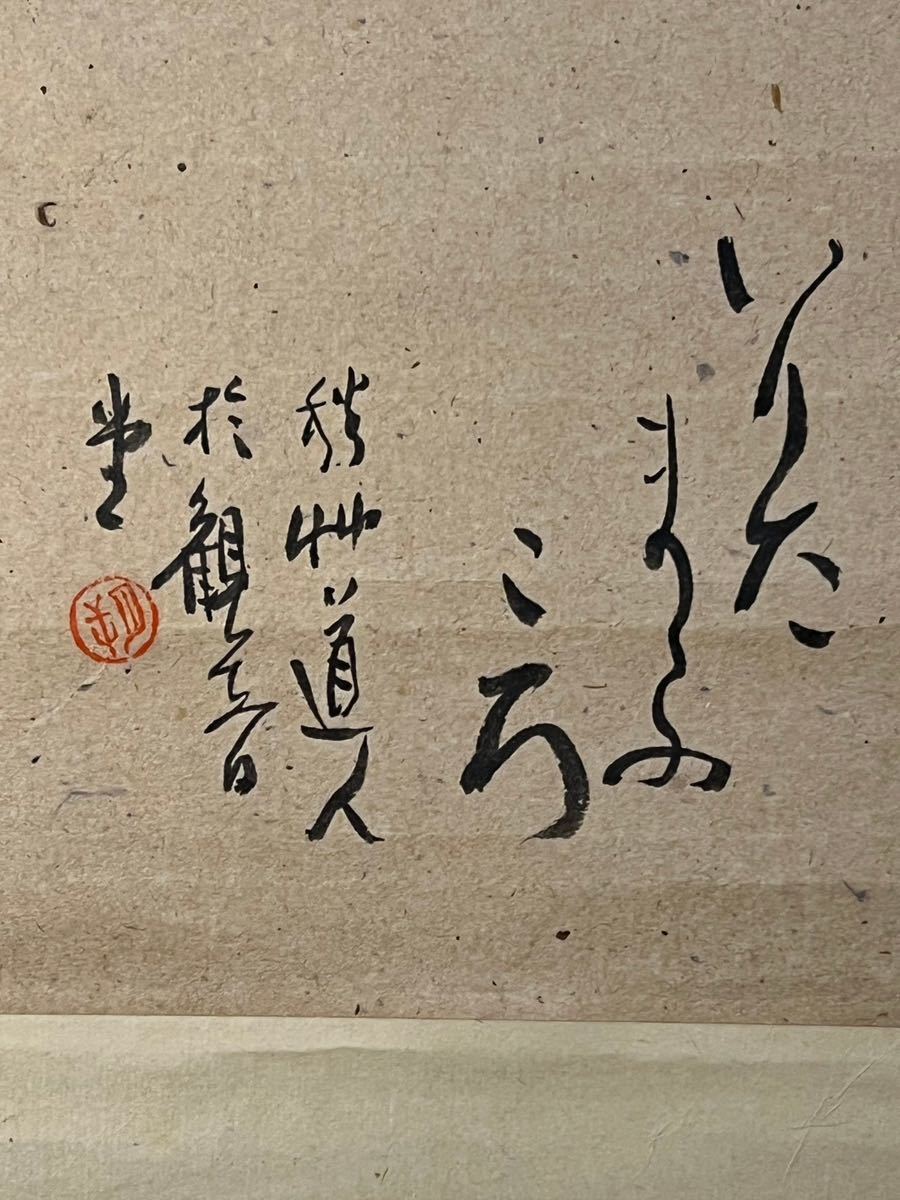 いりた
まふ
ころ
秋艸道人
於觀音
堂